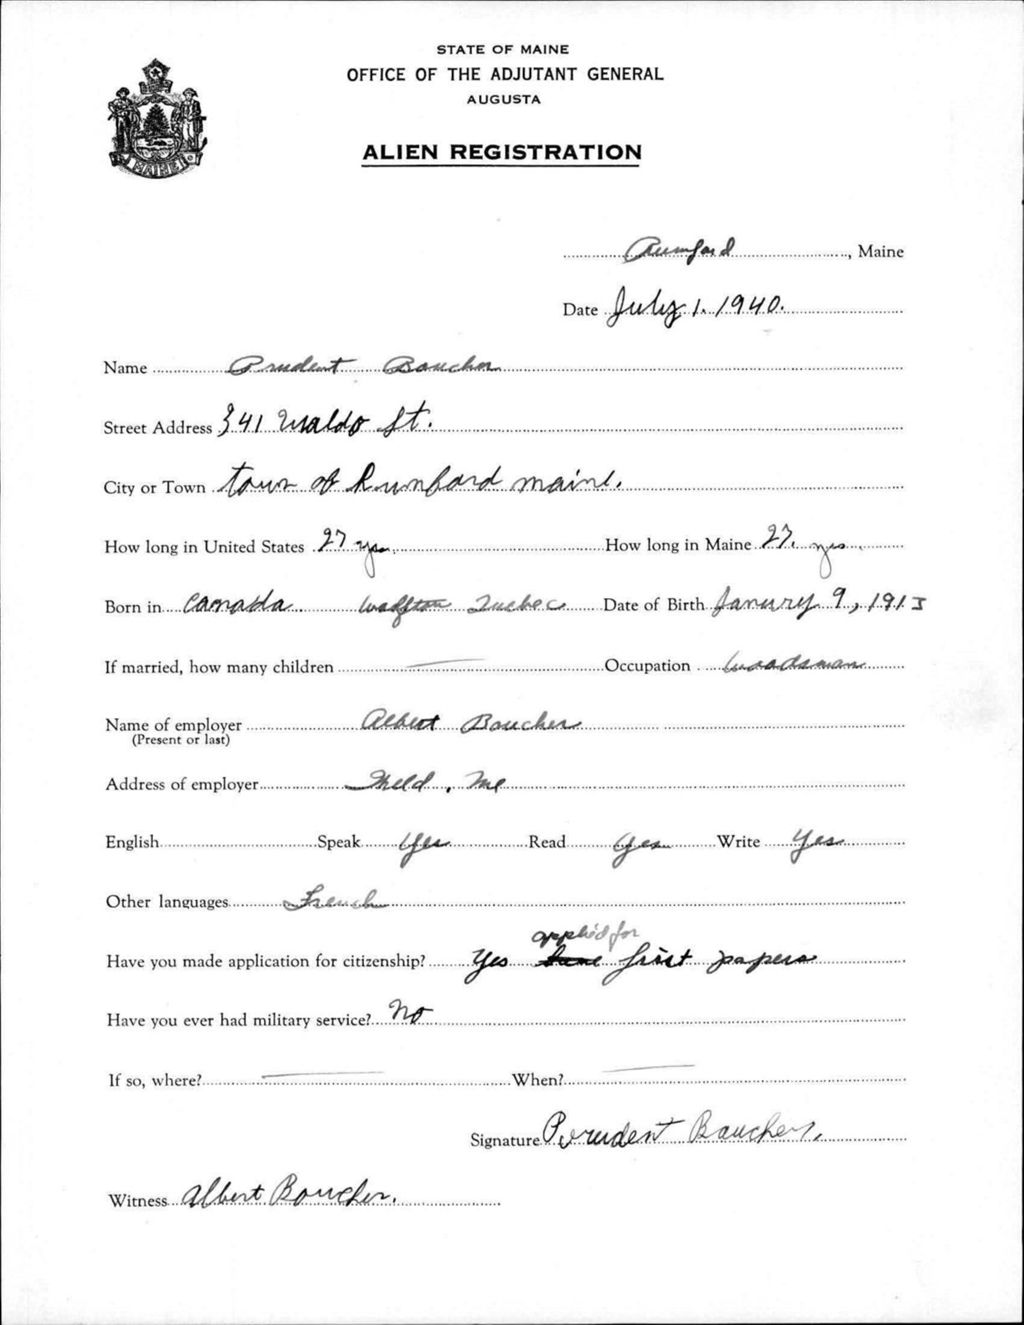 STATE OF MAINE
OFFICE OF THE ADJUTANT GENERAL
AUGUSTA
MAINE
ALIEN REGISTRATION
Rumford, Maine
Date July 1. 1940.
Name Prudent Boucher
Street Address 341 Waldo St.
City or Town town of Rumford maine.
How long in United States 27 yrs. How long in Maine 27. yrs.
Born in Canada Quebec Date of Birth Janurzy 9, 1913
If married, how many children — Occupation Woodsman
Name of employer Albert Boucher
(Present or last)
Address of employer Me
English Speak Yes Read Yes Write Yes
Other languages French
applied for
Have you made application for citizenship? Yes first papers
Have you ever had military service? No
If so, where? — When? —
Signature Prudent Boucher,
Witness Albert Boucher.